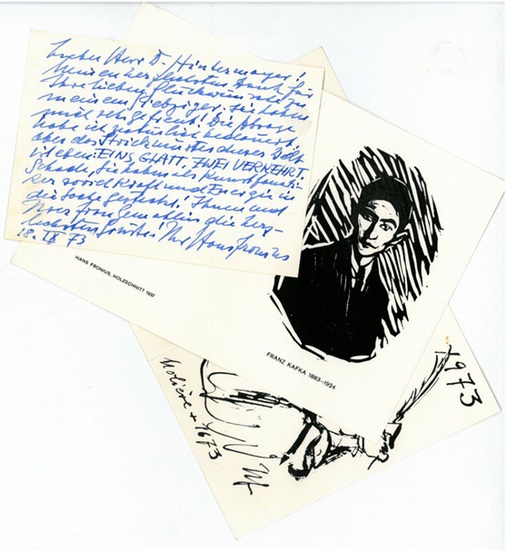 Lieber Herr D. Hintermayer!
Meinen herzlichsten Dank für
Ihre lieben Glückwünsche zu
meinem Siebziger. Sie haben
mich sehr gefreut! Die Absage
habe ich natürlich bedauert,
aber das Strickmuster dieser Welt
ist eben: EINS GLATT, ZWEI VERKEHRT.
Schade, Sie haben als Kunstfanati-
ker soviel Kraft und Energie in
die Sache gesteckt! Ihnen und
Ihrer Frau Gemahlin die herz-
lichsten Grüße! Ihr Hans Fronius
18. IX 73
HANS FRONIUS, HOLZSCHNITT 1937
FRANZ KAFKA 1883–1924
1973
Molière + 1673